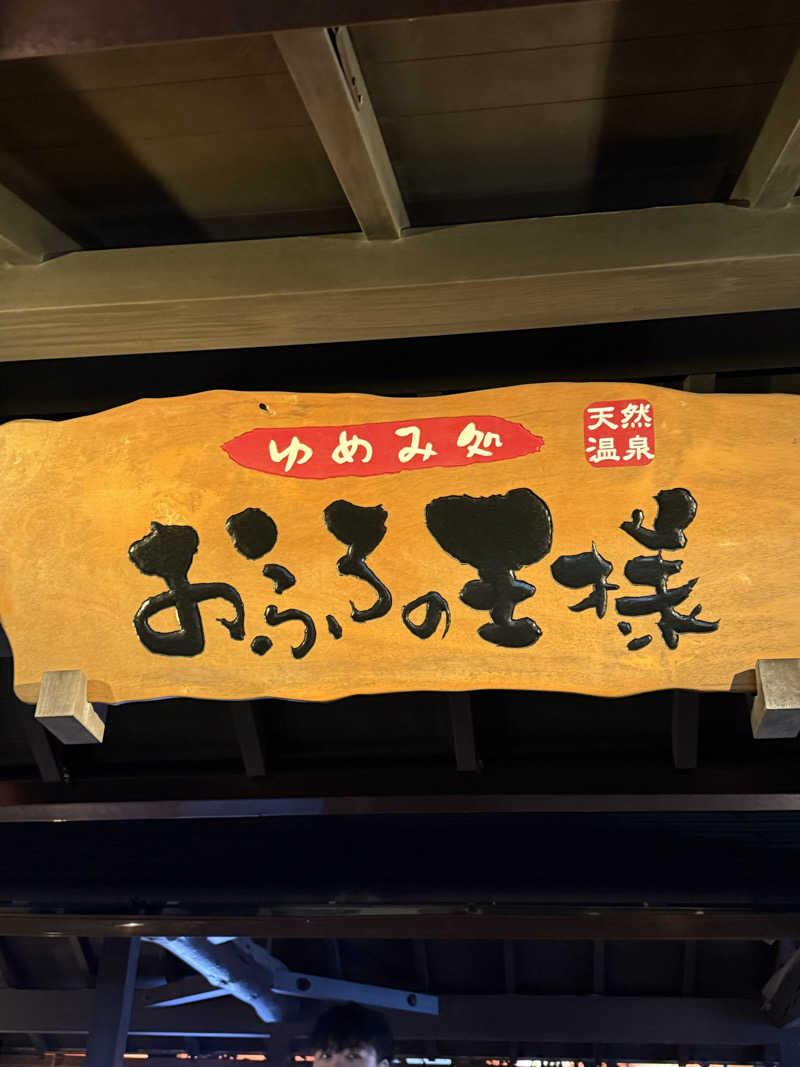 ゆめみ処
天然
温泉
おふろの王様